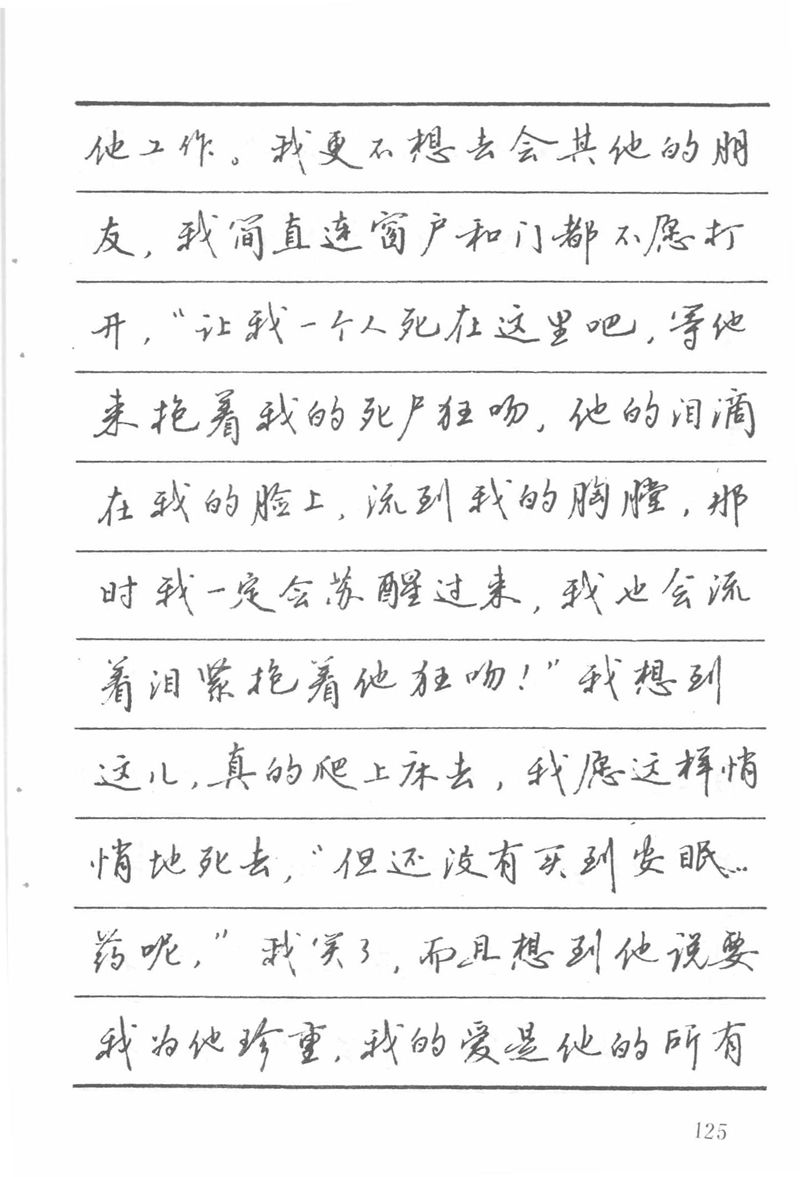 他工作。我更不想去会其他的朋
友，我简直连窗户和门都不愿打
开，“让我一个人死在这里吧，等他
来抱着我的死尸狂吻，他的泪滴
在我的脸上，流到我的胸膛，那
时我一定会苏醒过来，我也会流
着泪紧抱着他狂吻！”我想到
这儿，真的爬上床去，我愿这样悄
悄地死去，“但还没有买到安眠…
药呢，”我笑了，而且想到他说要
我为他珍重，我的爱是他的所有
125